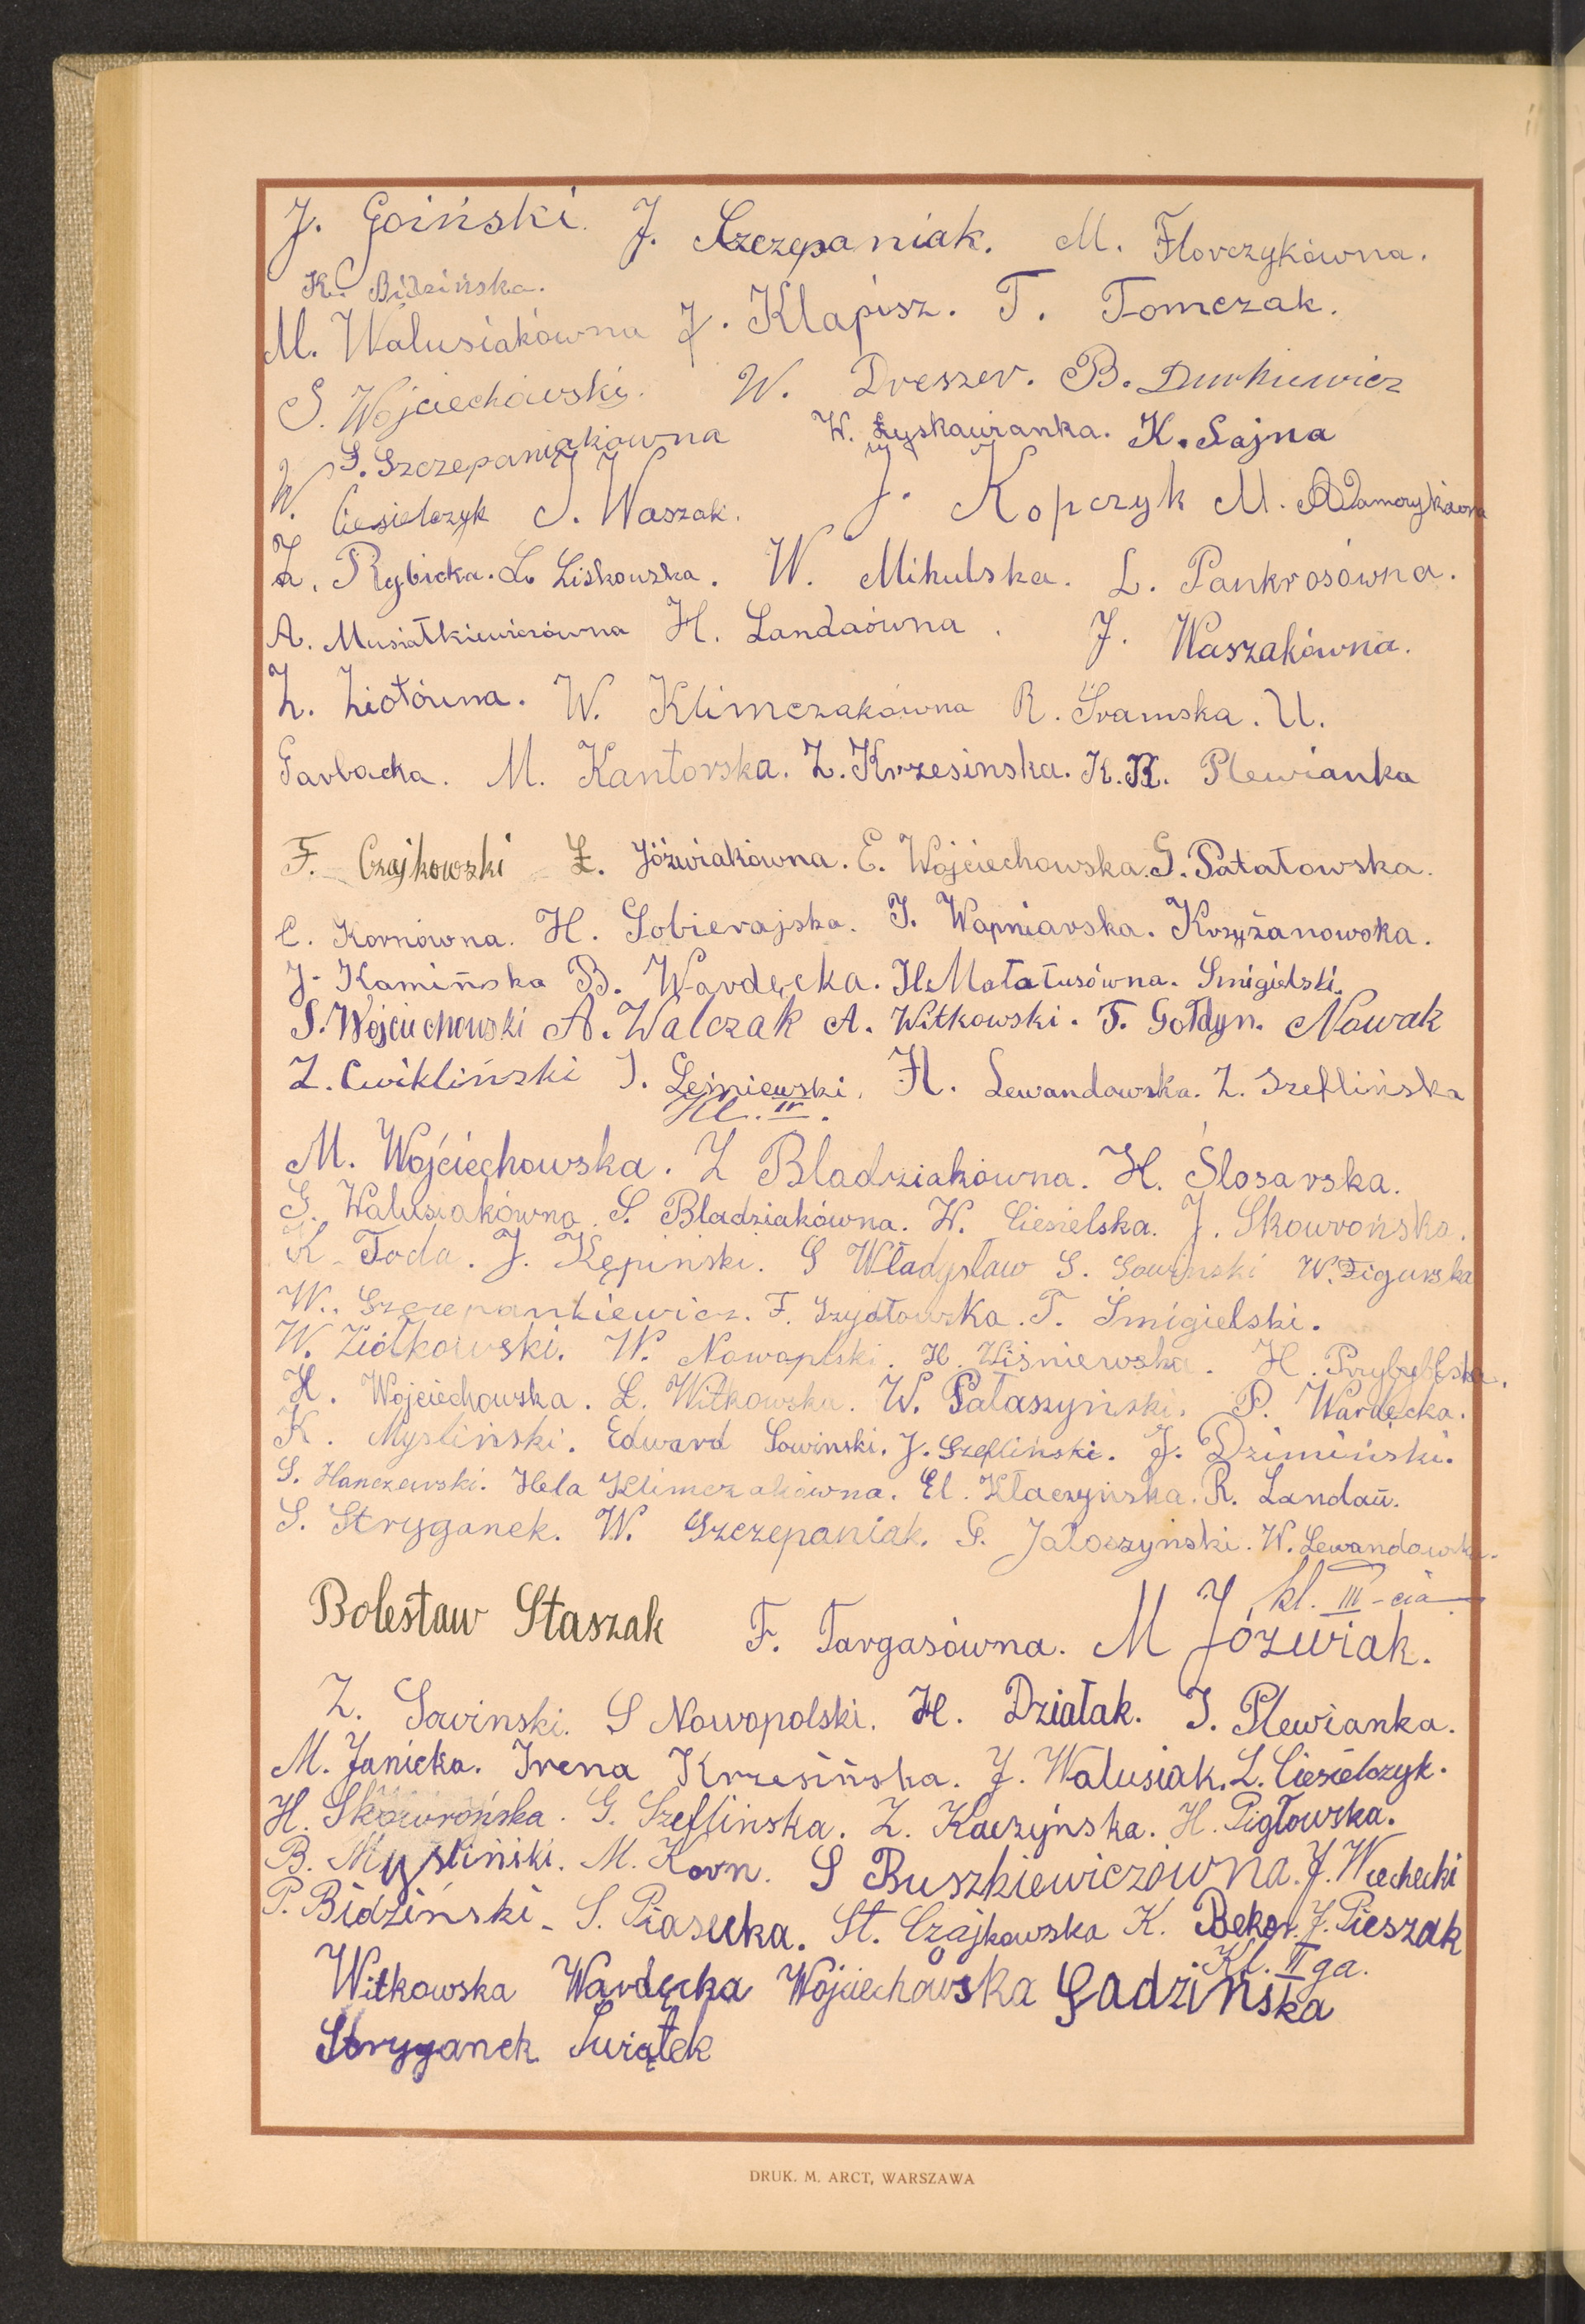 J. Goiński. J. Szczepaniak. M. Florczykówna.
K. Bidzińska.
M. Walusiakówna J. Klapisz. T. Tomczak.
S. Wojciechowski. W. Dreszer. B. Durkiewicz
S. Szczepaniakówna W. Łyskawianka. K. Sajna
W. Ciesielczyk J. Waszak. J. Kopczyk M. Adamczykówna
Z. Rybicka. L. Liskowska. W. Mikulska. L. Pankrosówna.
A. Musiałkiewiczówna H. Landaówna. J. Waszakówna.
Z. Ziołówna. W. Klimczakówna R. Sramska. U.
Garbacka. M. Kantorska. Z. Krzesinska. K. K. Plewianka
F. Czajkowski Z. Jóźwiakówna. E. Wojciechowska. G. Patałowska.
C. Kornówna. H. Sobierajska. J. Wapniarska. Krzyżanowska.
J. Kamińska B. Wardęcka. H. Matałusówna. Smigielski.
S. Wojciechowski A. Walczak A. Witkowski. T. Gołdyn. Nowak
Z. Cwikliński J. Leśniewski. H. Lewandowska. Z. Szeflińska
Kl. IV.
M. Wojciechowska. Z Bladziakówna. H. Ślosarska.
G. Walusiakówna. S. Bladziakówna. W. Ciesielska. J. Skowrońska.
K. Toda. J. Kępinski. S Władysław S. Sowinski W. Figurska
W. Szczepankiewicz. F. Szydłowska. T. Śmigielski.
W. Ziółkowski. W. Nowopolski. H. Wiśniewska. H.
H. Wojciechowska. L. Witkowska. W. Pałaszyński. P. Wardęcka.
K. Mysliński. Edward Sowinski. J. Szefliński. J. Dzimiński.
S. Hanczewski. Hela Klimczakówna. El. Kłaczyńska. R. Landau.
S. Stryganek. W. Szczepaniak. S. Jałoszyński. W. Lewandowska.
kl. III-cia
Bolesław Staszak F. Targasówna. M Jóźwiak.
Z. Sowinski. S Nowopolski. H. Działak. J. Plewianka.
M. Janicka. Irena Krzesińska. J. Walusiak. L. Ciesielczyk.
H. Skowrońska. G. Szeflinska. Z. Kaczyńska. H. Pigłowska.
B. Mysliński. M. Korn. S Buszkiewiczówna. J. Wiechecki
P. Bidziński. S. Piasecka. St. Czajkowska K. Beker. J. Pieszak
Kl. II ga.
Witkowska Wardęcka Wojciechowska Gadzińska
Stryganek Świątek
DRUK. M. ARCT, WARSZAWA